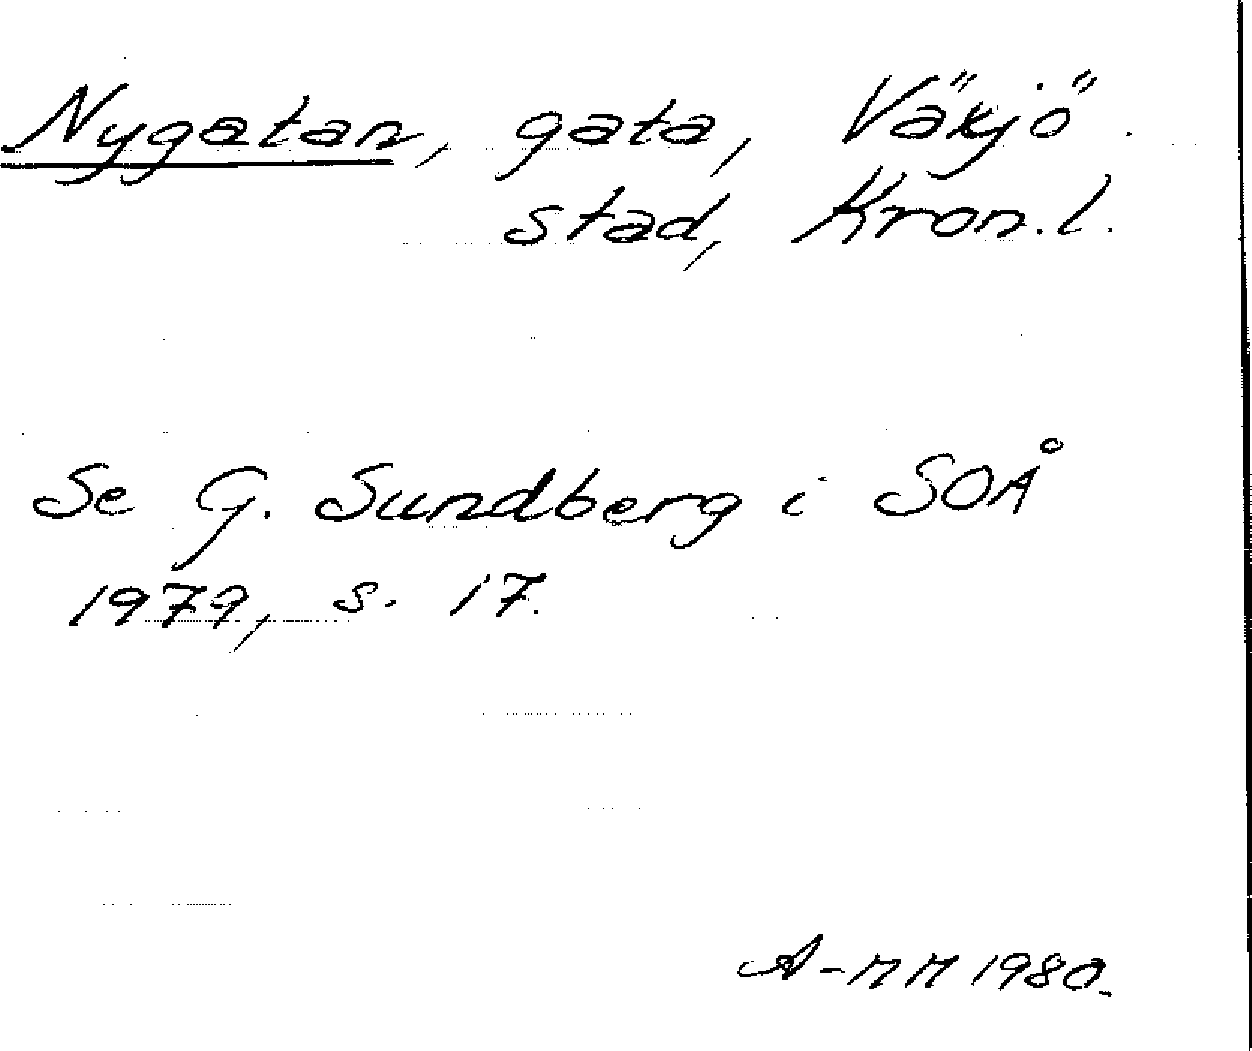 Nygatan, gata, Väkjö
stad, Kron.l.
Se G. Sundberg i SOÅ
1979, s. 17.
A-MM 1980.